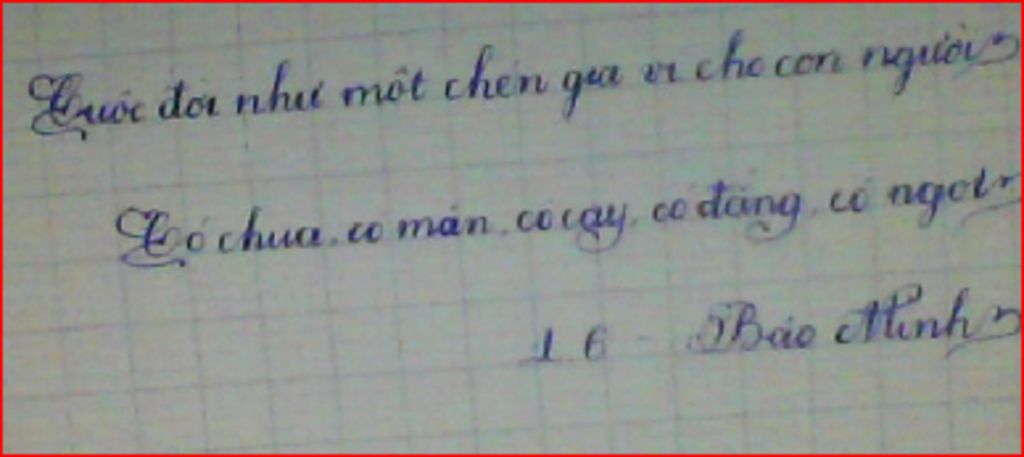 Cuộc đời như một chén gia vị cho con người
Có chua, có mặn, có cay, có đắng, có ngọt
16 - Bảo Minh